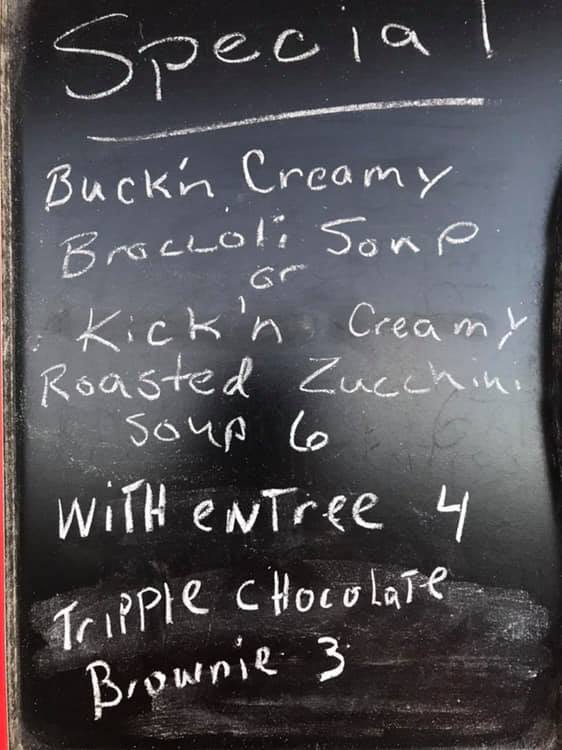 Special
Buck'n Creamy
Broccoli Soup
or
Kick'n Creamy
Roasted Zucchini
Soup 6
WiTH eNTree 4
Tripple CHocoLaTe
Brownie 3